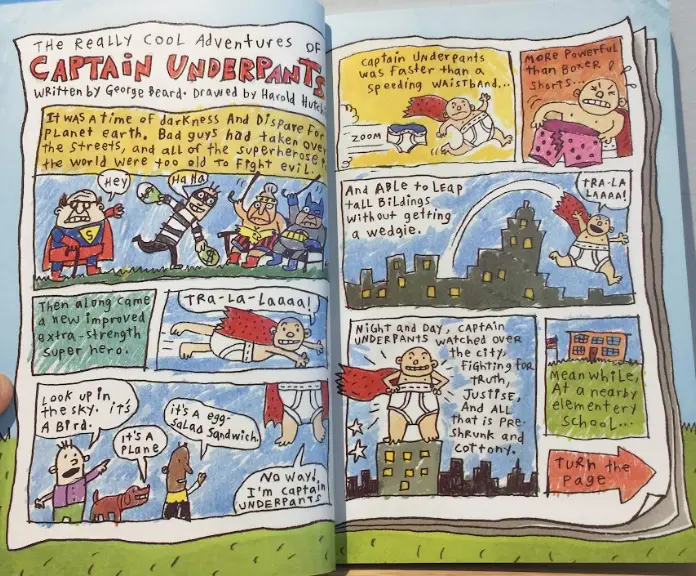 The Really Cool Adventures of
CAPTAIN UNDERPANTS
Written by George Beard. Drawed by Harold
It was a time of darkness And Dispare For
PLanet earth. Bad guys had taken over
the streets, and all of the superherose
the world were too old to fight evil.
Hey
Ha Ha
S
$
Then along came
a new improved
extra-strength
super hero.
TRA-LA-Laaaa!
Look up in
the sky. it's
A Bird.
It's A
PLANE
it's a egg-
salad sandwich.
No way!
I'm captain
UNDERPANTS
Captain Underpants
was faster than a
speeding waistband...
ZOOM
More Powerful
than Boxer
shorts...
And ABLe to Leap
tall BiLdings
without getting
a wedgie.
TRA-LA
LAAAA!
Night and Day, captain
UNDERPANTS watched over
the city,
Fighting for
truth,
Justise,
And ALL
that is pre-
shrunk and
cottony.
Meanwhile,
At a nearby
elementery
school...
TURN the
Page